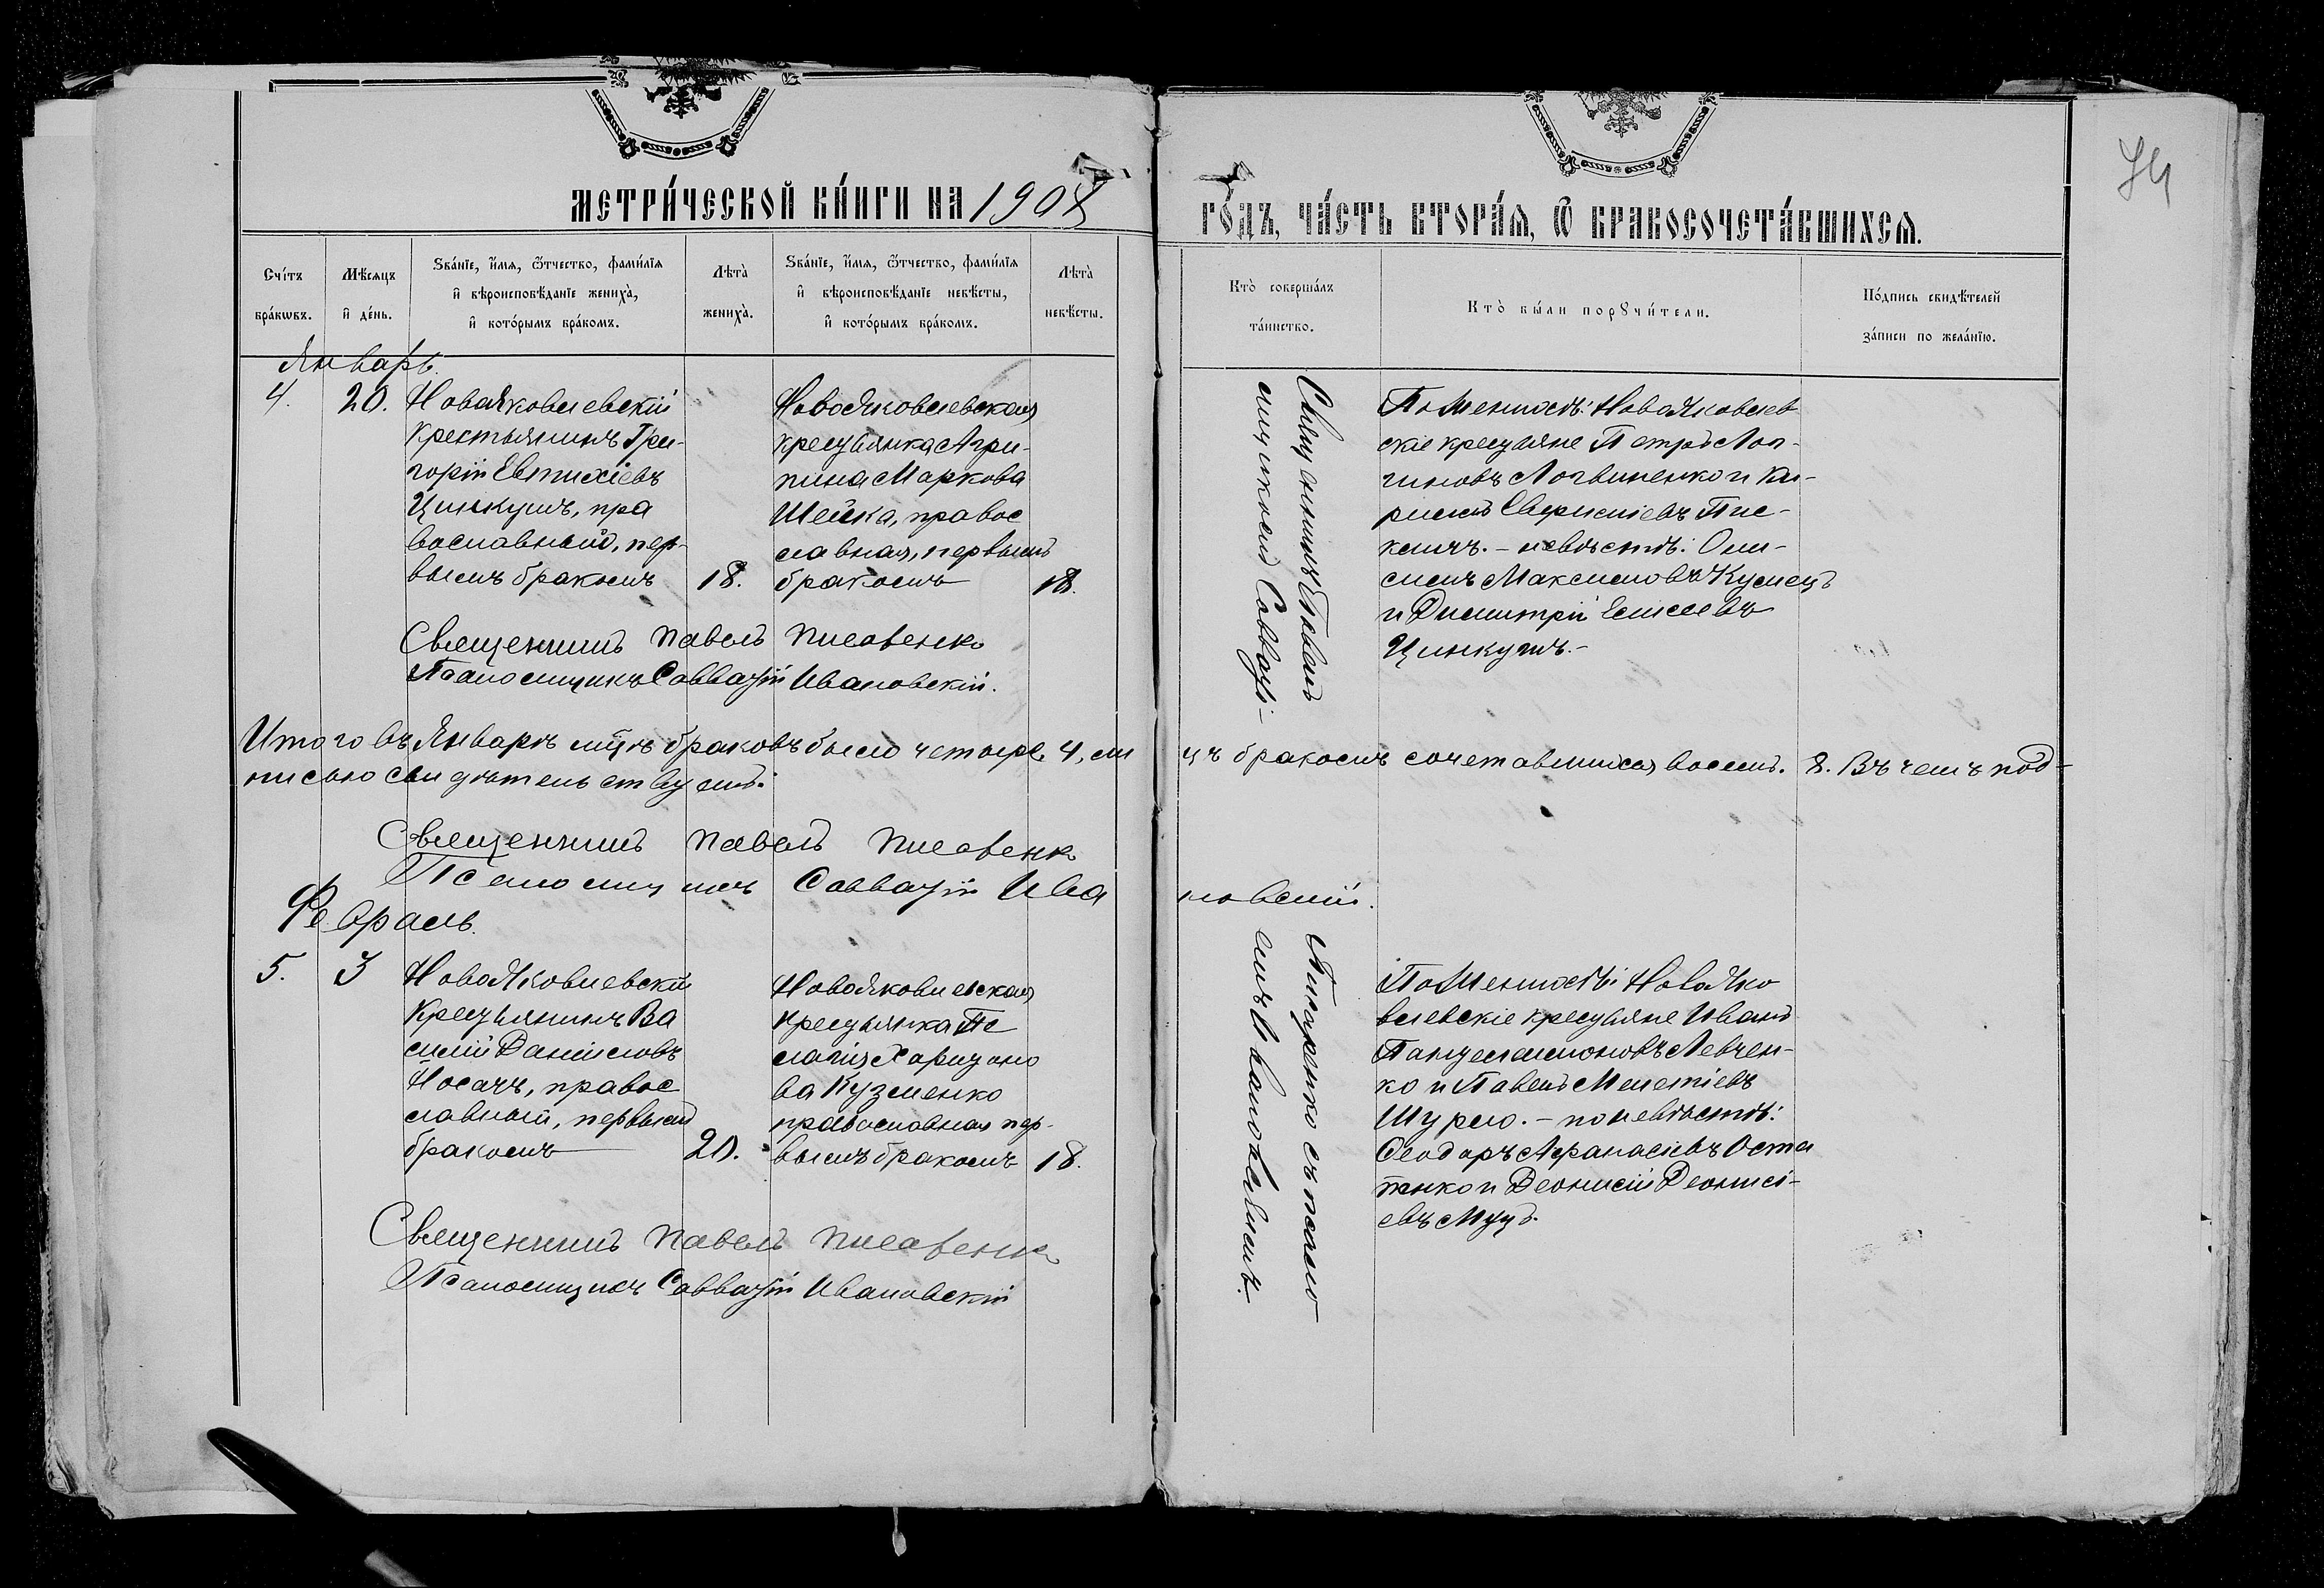 МЕТРИ́ЧЕСКОЙ КИ́ИГИ НА 1908
ГО́ДЪ, ЧА́СТЬ ВТОРА́Я, Ѿ БРАКОСОЧЕТА́ВШИХСЯ.
74
Сче́тъ бра́кѡвъ.
Мѣ́сяцъ и҆ де́нь.
Ѕва́нїе, и҆́мя, ѻ҆́тчество, фами́лїя и҆ вѣроисповѣ́данїе жениха̀, и҆ кото́рымъ бра́комъ.
Лѣта̀ жениха̀.
Ѕва́нїе, и҆́мя, ѻ҆́тчество, фами́лїя и҆ вѣроисповѣ́данїе невѣ́сты, и҆ кото́рымъ бра́комъ.
Лѣта̀ невѣ́сты.
Кто̀ соверша́лъ та́инство.
Кто̀ бы́ли порꙋчи́тели.
По́дпись свидѣ́телей за́писи по жела́нїю.
Январь.
4.
20.
Новояковлевскій
крестьянинъ Гри-
горій Евтихіевъ
Цинкушъ, пра
вославный, пер-
вымъ бракомъ
18.
Новояковлевская
крестьянка Агри-
пина Маркова
Шейка, правос
лавная, первымъ
бракомъ
18.
Священникъ Павелъ
По женихѣ: Новояковлев
скіе крестьяне Петръ Лог-
гиновъ Логвиненко и Ки-
риллъ
невѣстѣ: Они-
симъ Максимовъ
и Димитрій Елисеевъ
Цинкушъ.-
Священникъ Павелъ Писаренко
Псаломщикъ Савватій Ивановскій.
Итого въ Январѣ м-цѣ браковъ было четыре 4, ли
цъ бракомъ сочетавшихся восемь. 8. Въ чемъ под-
писью свидѣтельствуемъ:
Священникъ Павелъ Писаренко
Псаломщикъ Савватій Ива
новскій.
Февраль.
5.
3
Новояковлевскій
крестьянинъ Ва
силій Даниловъ
Носачъ, правос
лавный, первымъ
бракомъ
20.
Новояковлевская
крестьянка Пе
лагія Харитоно
ва Кузменко
православная пер-
вымъ бракомъ
18.
Писаренко съ псало
мщикомъ Савваті-
емъ Ивановскимъ.
По женихѣ: Новояко
влевскіе крестьяне Иванъ
Пантелеимоновъ Левчен-
ко и Павелъ Мелетіевъ
Шурло. - по невѣстѣ:
Ѳеодоръ Афанасіевъ Оста
пенко и Деонисій Деонисі-
евъ
Священникъ Павелъ Писаренко
Псаломщикъ Савватій Ивановскій